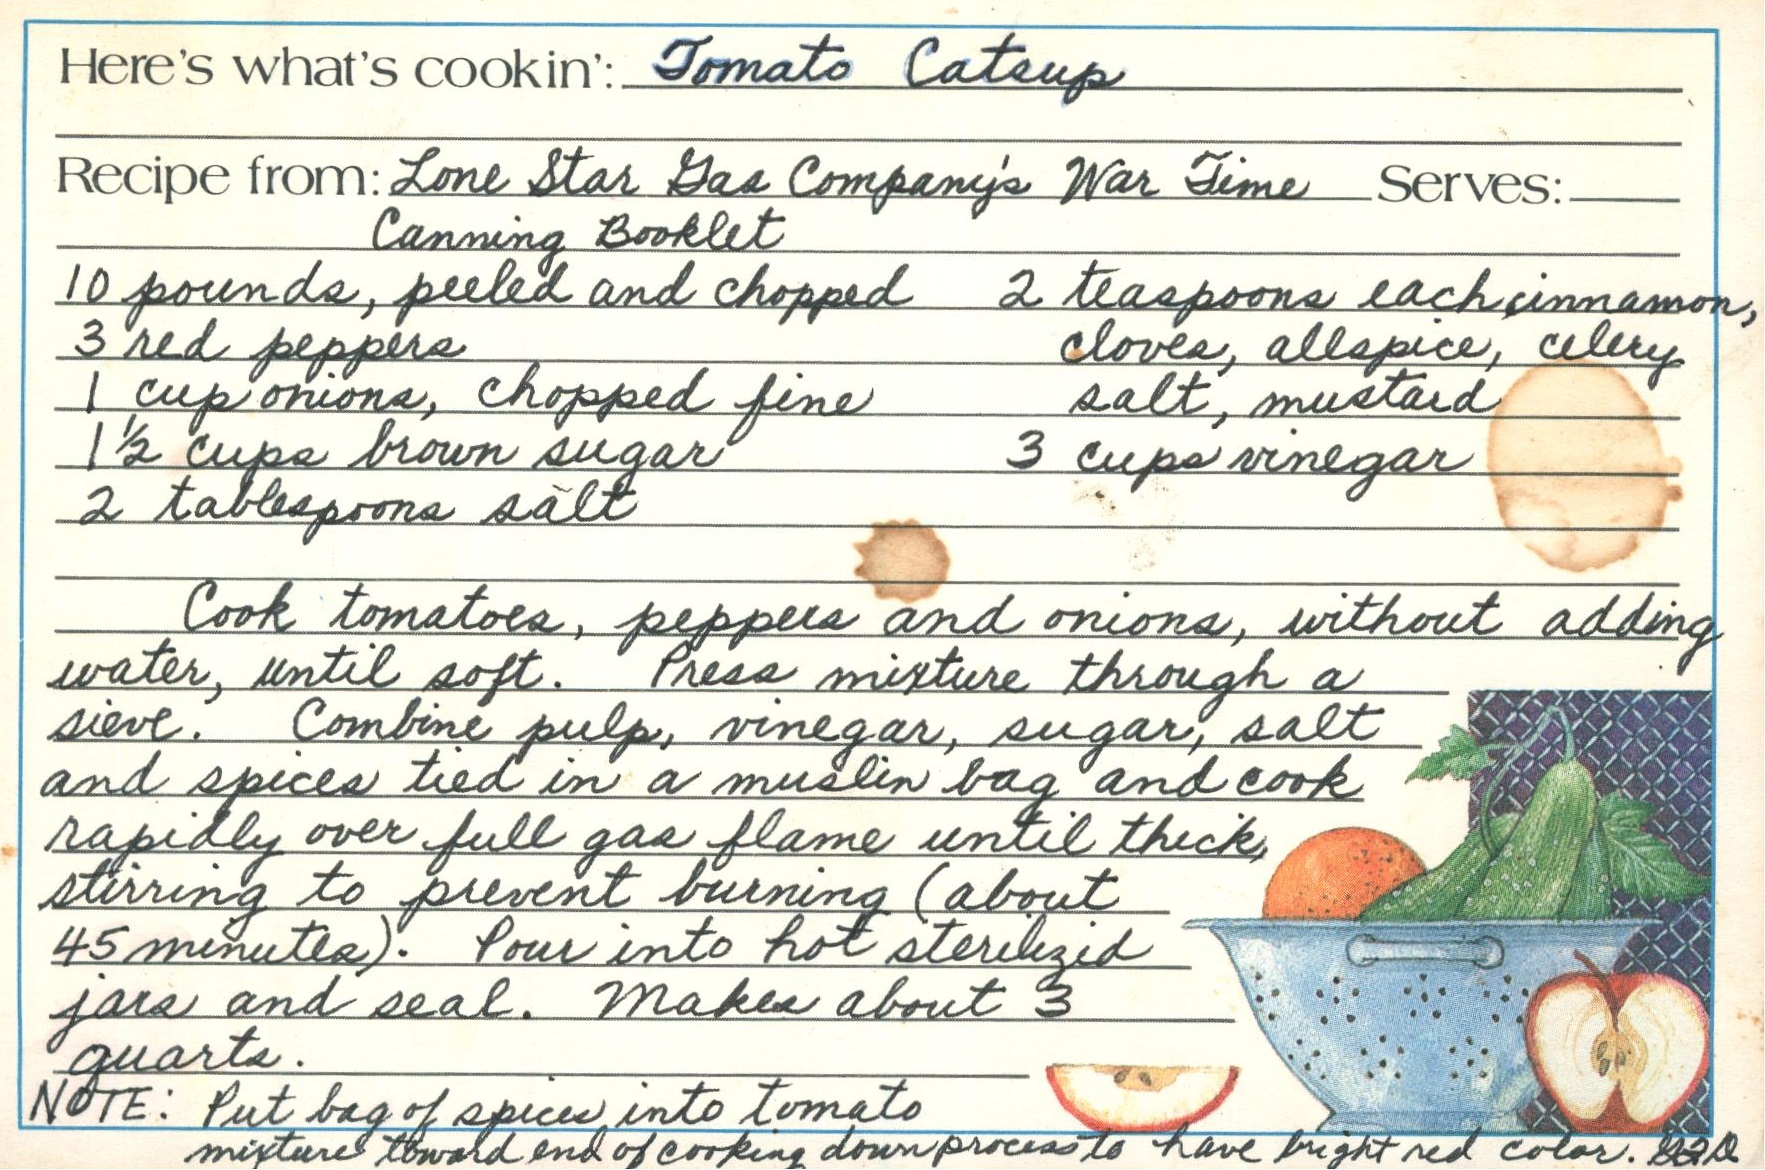 Here's what's cookin': Tomato Catsup
Recipe from: Lone Star Gas Company's War Time Serves:
Canning Booklet
10 pounds, peeled and chopped 2 teaspoons each cinnamon,
3 red peppers cloves, allspice, celery
1 cup onions, chopped fine salt, mustard
1 1/2 cups brown sugar 3 cups vinegar
2 tablespoons salt
Cook tomatoes, peppers and onions, without adding
water, until soft. Press mixture through a
sieve. Combine pulp, vinegar, sugar, salt
and spices tied in a muslin bag and cook
rapidly over full gas flame until thick,
stirring to prevent burning (about
45 minutes). Pour into hot sterilized
jars and seal. Makes about 3
quarts.
NOTE: Put bag of spices into tomato
mixture toward end of cooking down process to have bright red color.